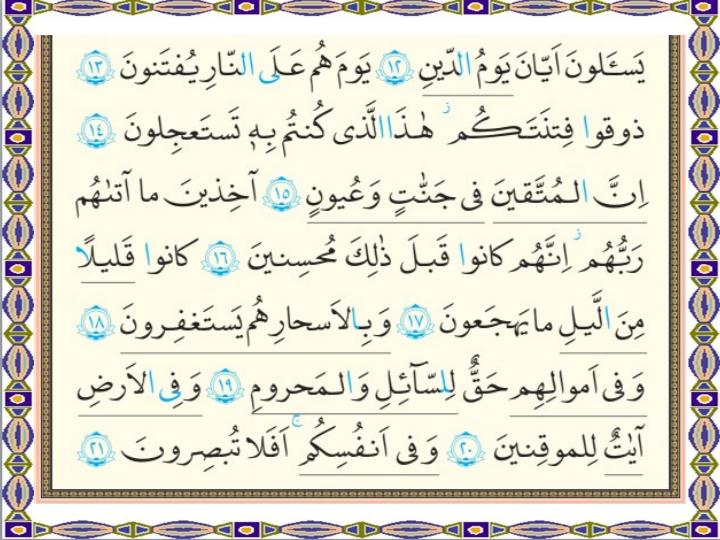 يَسـَٔلونَ اَيّانَ يَومُ الدّينِ ﴿١٢﴾ يَومَ هُم عَلَى النّارِ يُفتَنونَ ﴿١٣﴾
ذوقوا فِتنَتَكُم ۫ هٰذَا الَّذى كُنتُم بِهٖ تَستَعجِلونَ ﴿١٤﴾
اِنَّ المُتَّقينَ فى جَنّٰتٍ وَ عُيونٍ ﴿١٥﴾ آخِذينَ ما آتىٰهُم
رَبُّهُم ۫ اِنَّهُم كانوا قَبلَ ذٰلِكَ مُحسِنينَ ﴿١٦﴾ كانوا قَليلًا
مِنَ الَّيلِ ما يَهجَعونَ ﴿١٧﴾ وَ بِالاَسحارِ هُم يَستَغفِرونَ ﴿١٨﴾
وَ فى اَموالِهِم حَقٌّ لِلسّآئِلِ وَ المَحرومِ ﴿١٩﴾ وَ فِى الاَرضِ
آيٰتٌ لِلموقِنينَ ﴿٢٠﴾ وَ فى اَنفُسِكُم ۚ اَفَلا تُبصِرونَ ﴿٢١﴾